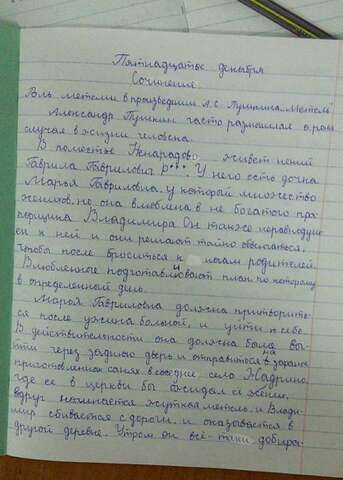 Пятнадцатое декабря
Сочинение.
Роль метели в произведении А.С. Пушкина „Метель"
Александр Пушкин часто размышлял о роли
случая в жизни человека.
В поместье Ненарадово живет некий
Гаврила Гаврилович Р***. У него есть дочка
Марья Гавриловна, у которой множество
женихов, но она влюблена в не богатого пра-
порщика Владимира. Он также неравнодуш-
ен к ней и они решают тайно обвенчаться,
чтобы после броситься к ногам родителей.
Влюбленные подготавливают план по которому
в определенный день.
Марья Гавриловна должна притворить-
ся после ужина больной, и уйти к себе.
В действительности она должна была вы-
йти через заднюю дверь и отправиться на заранее
приготовленных санях в соседнее село Жадрино,
где ее в церкви бы ожидал её жених.
вдруг начинается жуткая метель, и Влади-
мир сбивается с дороги, и оказывается в
другой деревне. Утром он всё-таки добира-